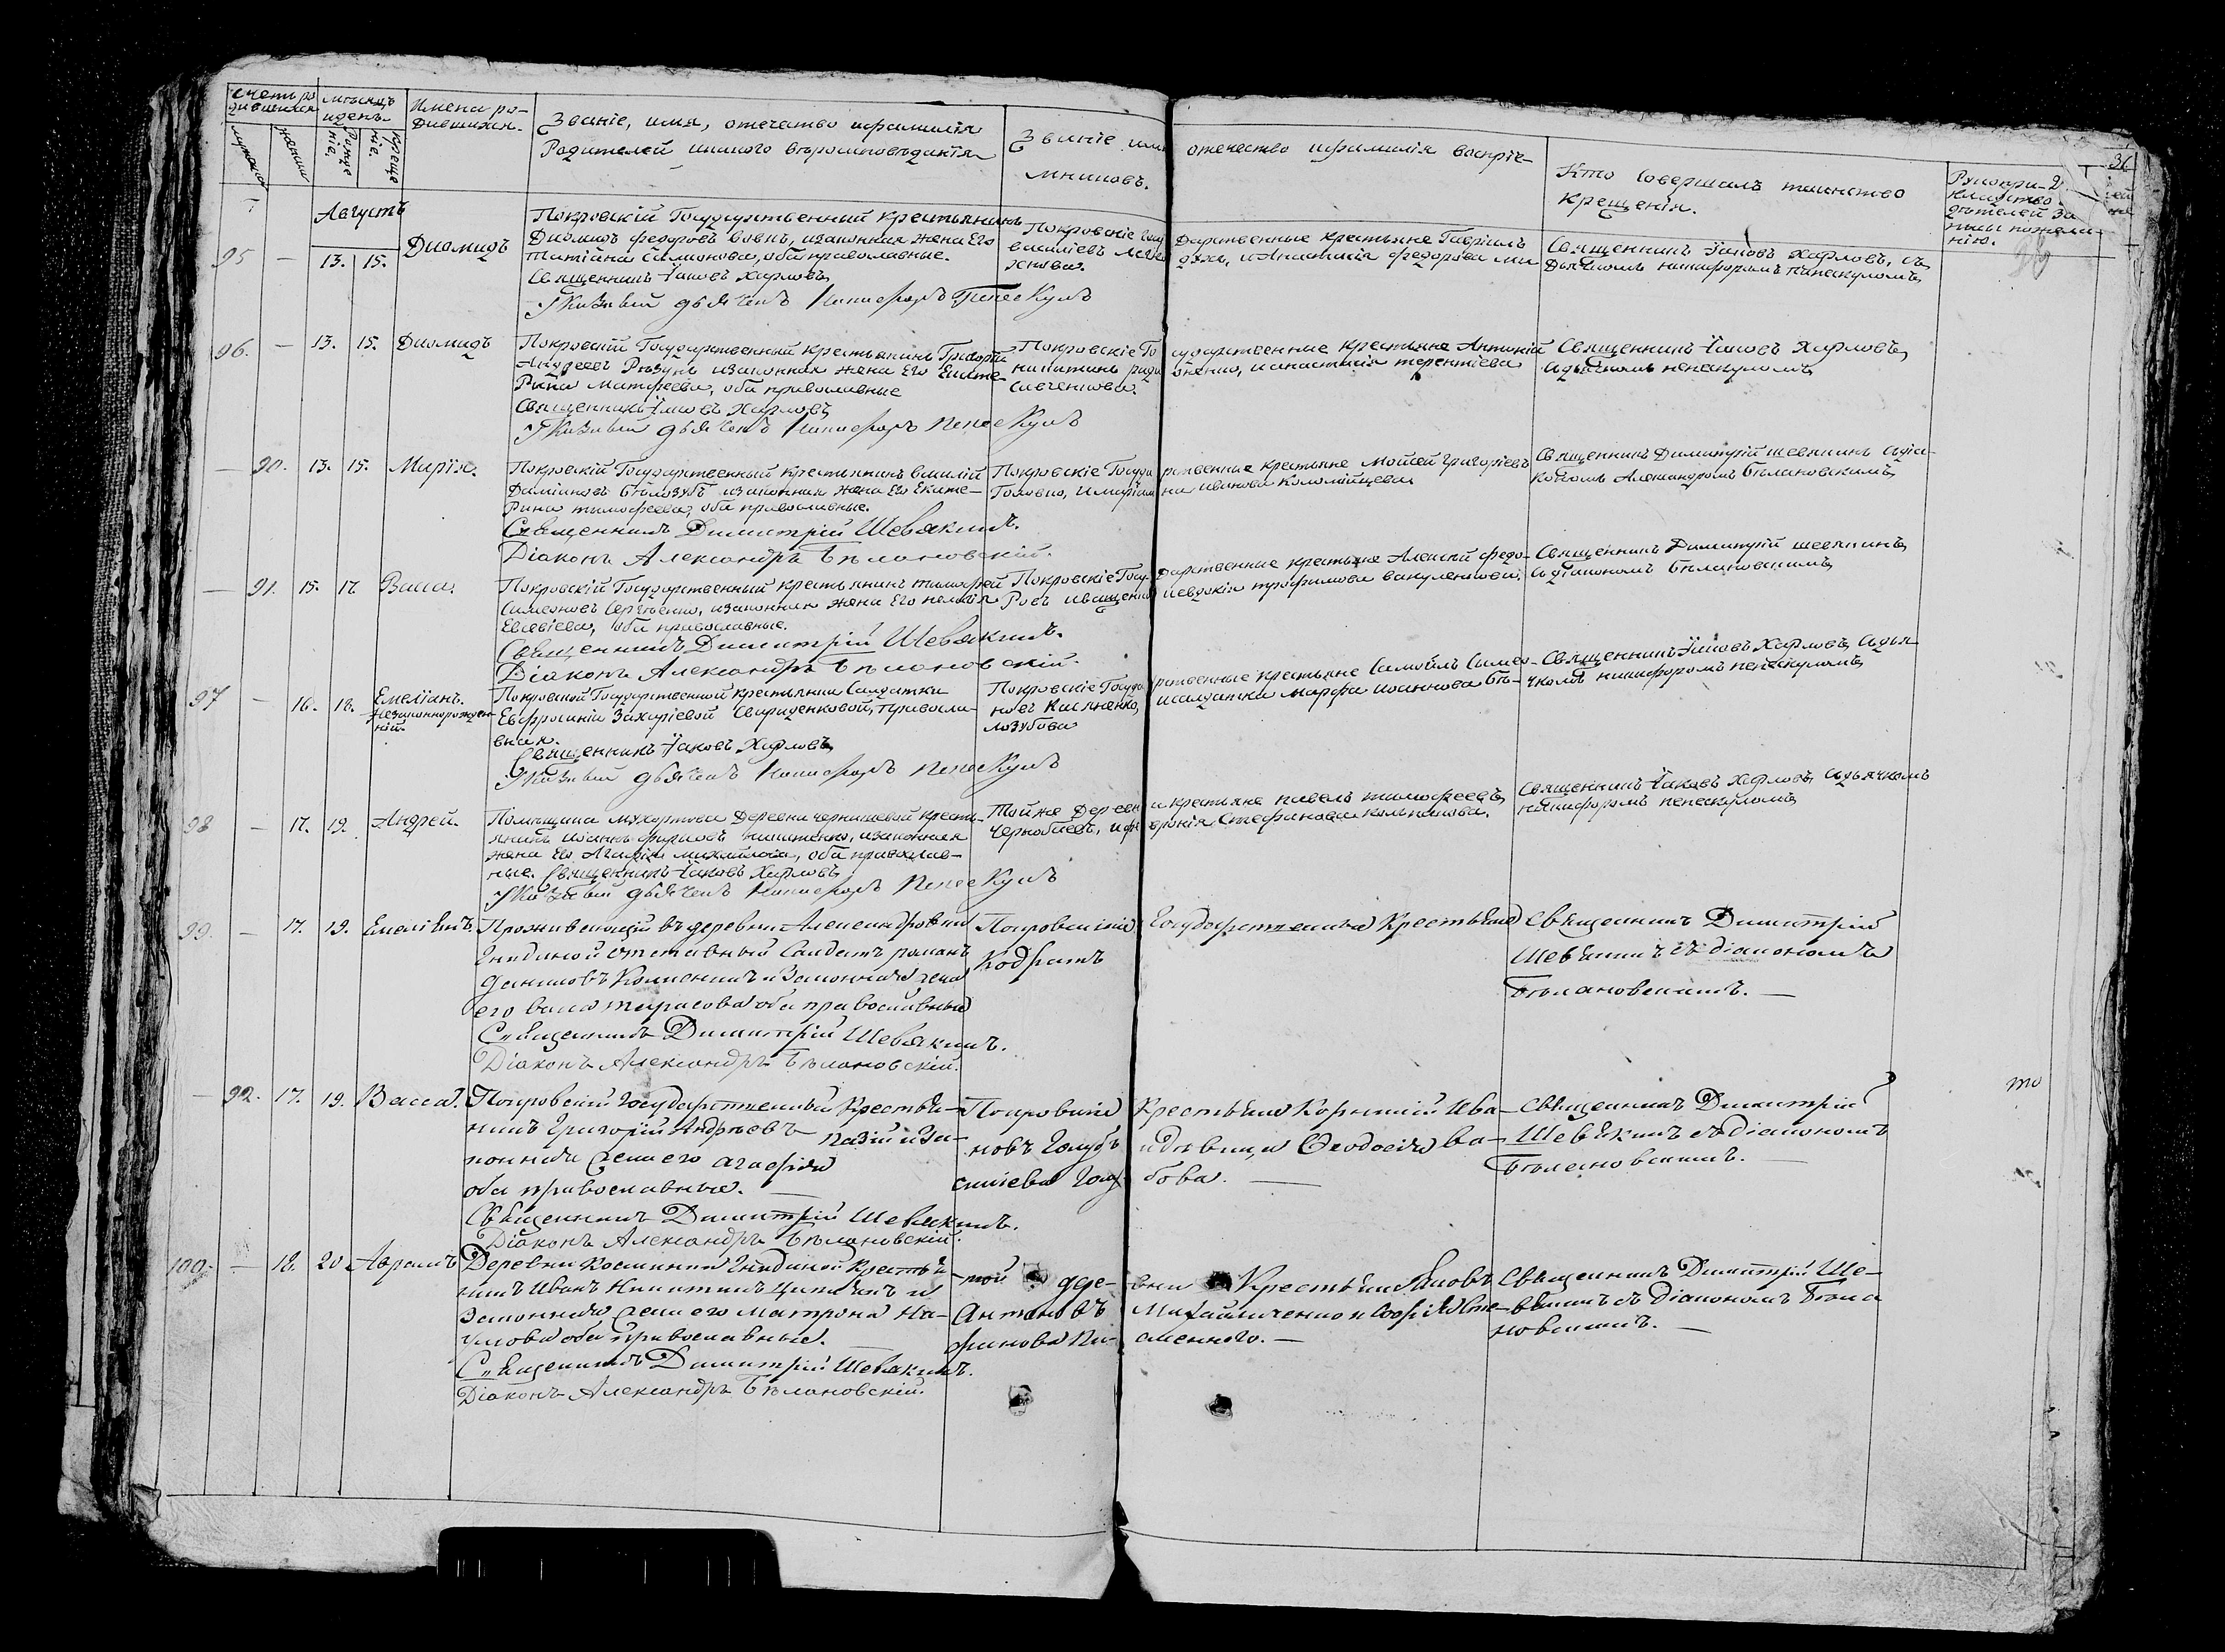 Счетъ ро-
дившихся
Мѣсяцъ
и день.
Имена ро-
дившихся.
Званіе, имя, отечество и фамилія
Родителей и какого вѣроисповѣданія
Званіе имя отечество и фамилія воспріе-
мниковъ.
Кто совершалъ таинство
крещенія.
Рукопри-
кладство
36
Мужеска
Женска
Рожде
ніе.
Креще
ніе.
Августъ
95 — 13. 15. Диомидъ
Покровскій Государственный крестьянинъ
Диомидъ Федоровъ Вовкъ, и законная жена Его
Татіана Симонова, оба православные.
Священникъ Іаковъ Харловъ
Указный дьячекъ Никифоръ Пепескулъ
Покровскіе Госу дарственные крестьяне Гавріилъ
Василіевъ и Анастасія Федорова
Священникъ Іаковъ Харловъ, съ
Дьячкомъ Никифоромъ Пепескуломъ
96. — 13. 15. Диомидъ
Покровскій Государственный крестьянинъ Григорій
Андреевъ и законная жена Его Екате
Рина Матфеева, оба православные
Священникъ Іаковъ Харловъ
Указный дьячекъ Никифоръ Пепескулъ
Покровскіе Го сударственные крестьяне Антоній
Никитинъ и Анастасія Терентіева
Савченкова.
Священникъ Іаковъ Харловъ
съ дьячкомъ Пепескуломъ
— 90. 13. 15. Марія.
Покровскій Государственный крестьянинъ Василій
Даміановъ Бѣлозубъ и законная жена Его Екате-
Рина Тимофеева, оба православные.
Священникъ Димитрій Шевякинъ.
Діаконъ Александръ Бѣлановскій.
Покровскіе Госуда рственные крестьяне Мойсей Григоріевъ
Головко, и Маріам на Иванова Коломійцева
Священникъ Димитрій Шевякинъ съ діа-
кономъ Александромъ Бѣлановскимъ
— 91. 15. 17. Васса.
Покровскій Государственный крестьянинъ Тимофей
Симеоновъ Сергѣенко, и законная жена Его Пелагія
Евсевіева, оба православные.
Священникъ Димитрій Шевякинъ.
Діаконъ Александръ Бѣлановскій.
Покровскіе Госу дарственные крестьяне Алексѣй Федо-
Ровъ Иващенко и Евдокія Трофимова Вакуленкова.
Священникъ Димитрій Шевякинъ
съ діакономъ Бѣлановскимъ
97 — 16. 18. Емеліанъ.
Незаконнорожден
ній.
Покровской Государственной крестьянки Солдатки
Евфросиніи Захаріевой Свириденковой, Правосла-
вная.
Священникъ Іаковъ Харловъ
Указный дьячекъ Никифоръ Пепескулъ
Покровскіе Госуда рственные крестьяне Самойлъ Симео-
новъ Касяненко, и солдатка Марфа Иоаннова Бѣ-
лозубова
Священникъ Іаковъ Харловъ съ дья-
чкомъ Никифоромъ Пепескуломъ
98 — 17. 19. Андрей.
Помѣщика Мухортова Деревни Чернышевой кресть-
янинъ Никитенко, и законная
жена Его Агафія Михайлова, оба православ-
ные. Священникъ Іаковъ Харловъ
Указный дьячекъ Никифоръ Пепескулъ
Той же Деревн и крестьяне Павелъ Тимофеевъ
Чернобаевъ, и Стефанова Колпакова.
Священникъ Іаковъ Харловъ съ дьячкомъ
Никифоромъ Пепескуломъ
99. — 17. 19. Емеліянъ.
Проживающій въ деревни Александровки
отставный Солдатъ Романъ
Даниловъ и Законная жена
его Васса Тарасова оба православные
Священникъ Димитрій Шевякинъ.
Діаконъ Александръ Бѣлановскій.
Покровскіе Государственные Крестьяне
Кодратъ
Священникъ Димитрій
Шевякинъ съ діакономъ
Бѣлановскимъ. —
— 92. 17. 19. Васса.
Покровскій Государственный Крестья-
нинъ Григорій Андреевъ и За-
конная жена его Агафія
оба православные. —
Священникъ Димитрій Шевякинъ.
Діаконъ Александръ Бѣлановскій.
Покровскіе Крестьяне Корнилій Ива-
новъ Голубъ и дѣвица Феодосія Ва-
силіева Голу бова. —
Священникъ Димитрій
Шевякинъ съ діакономъ
Бѣлановскимъ. —
то
100. — 18. 20 Аврамъ
Деревни Крестья
нинъ Иванъ Никитинъ и
Законная жена его Матрона На-
умова оба православные.
Священникъ Димитрій Шевякинъ.
Діаконъ Александръ Бѣлановскій.
той дере- вни Крестьяне Яковъ
Антоновъ Михайличенко и Софія
Священникъ Димитрій Ше-
вякинъ съ діакономъ Бѣла
новскимъ. —